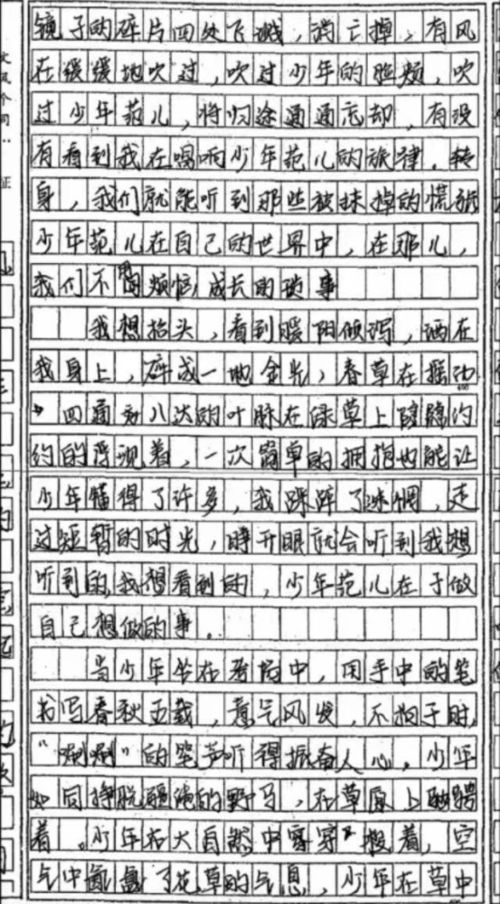 镜子的碎片四处飞溅，消亡掉，有风
在缓缓地吹过，吹过少年的脸颊，吹
过少年范儿，将归途通通忘却，有没
有看到我在唱响少年范儿的旋律，转
身，我们就能听到那些被抹掉的慌张
少年范儿在自己的世界中，在那儿，
我们不用烦恼成长的琐事
我想抬头，看到暖阳倾泻，洒在
我身上，碎成一地金光，春草在摇动
，四通八达的叶脉在绿草上隐隐约
约的浮现着，一次简单的拥抱也能让
少年懂得了许多，我踩碎了迷惘，走
过短暂的时光，睁开眼就会听到我想
听到的，我想看到的，少年范儿在于做
自己想做的事。
当少年坐在考场中，用手中的笔
书写春秋五载，意气风发，不拘于时，
“唰唰”的笔声听得振奋人心，少年
如同挣脱缰绳的野马，在草原上驰骋
着。少年在大自然中穿着，空
气中氤氲了花草的气息，少年在草中